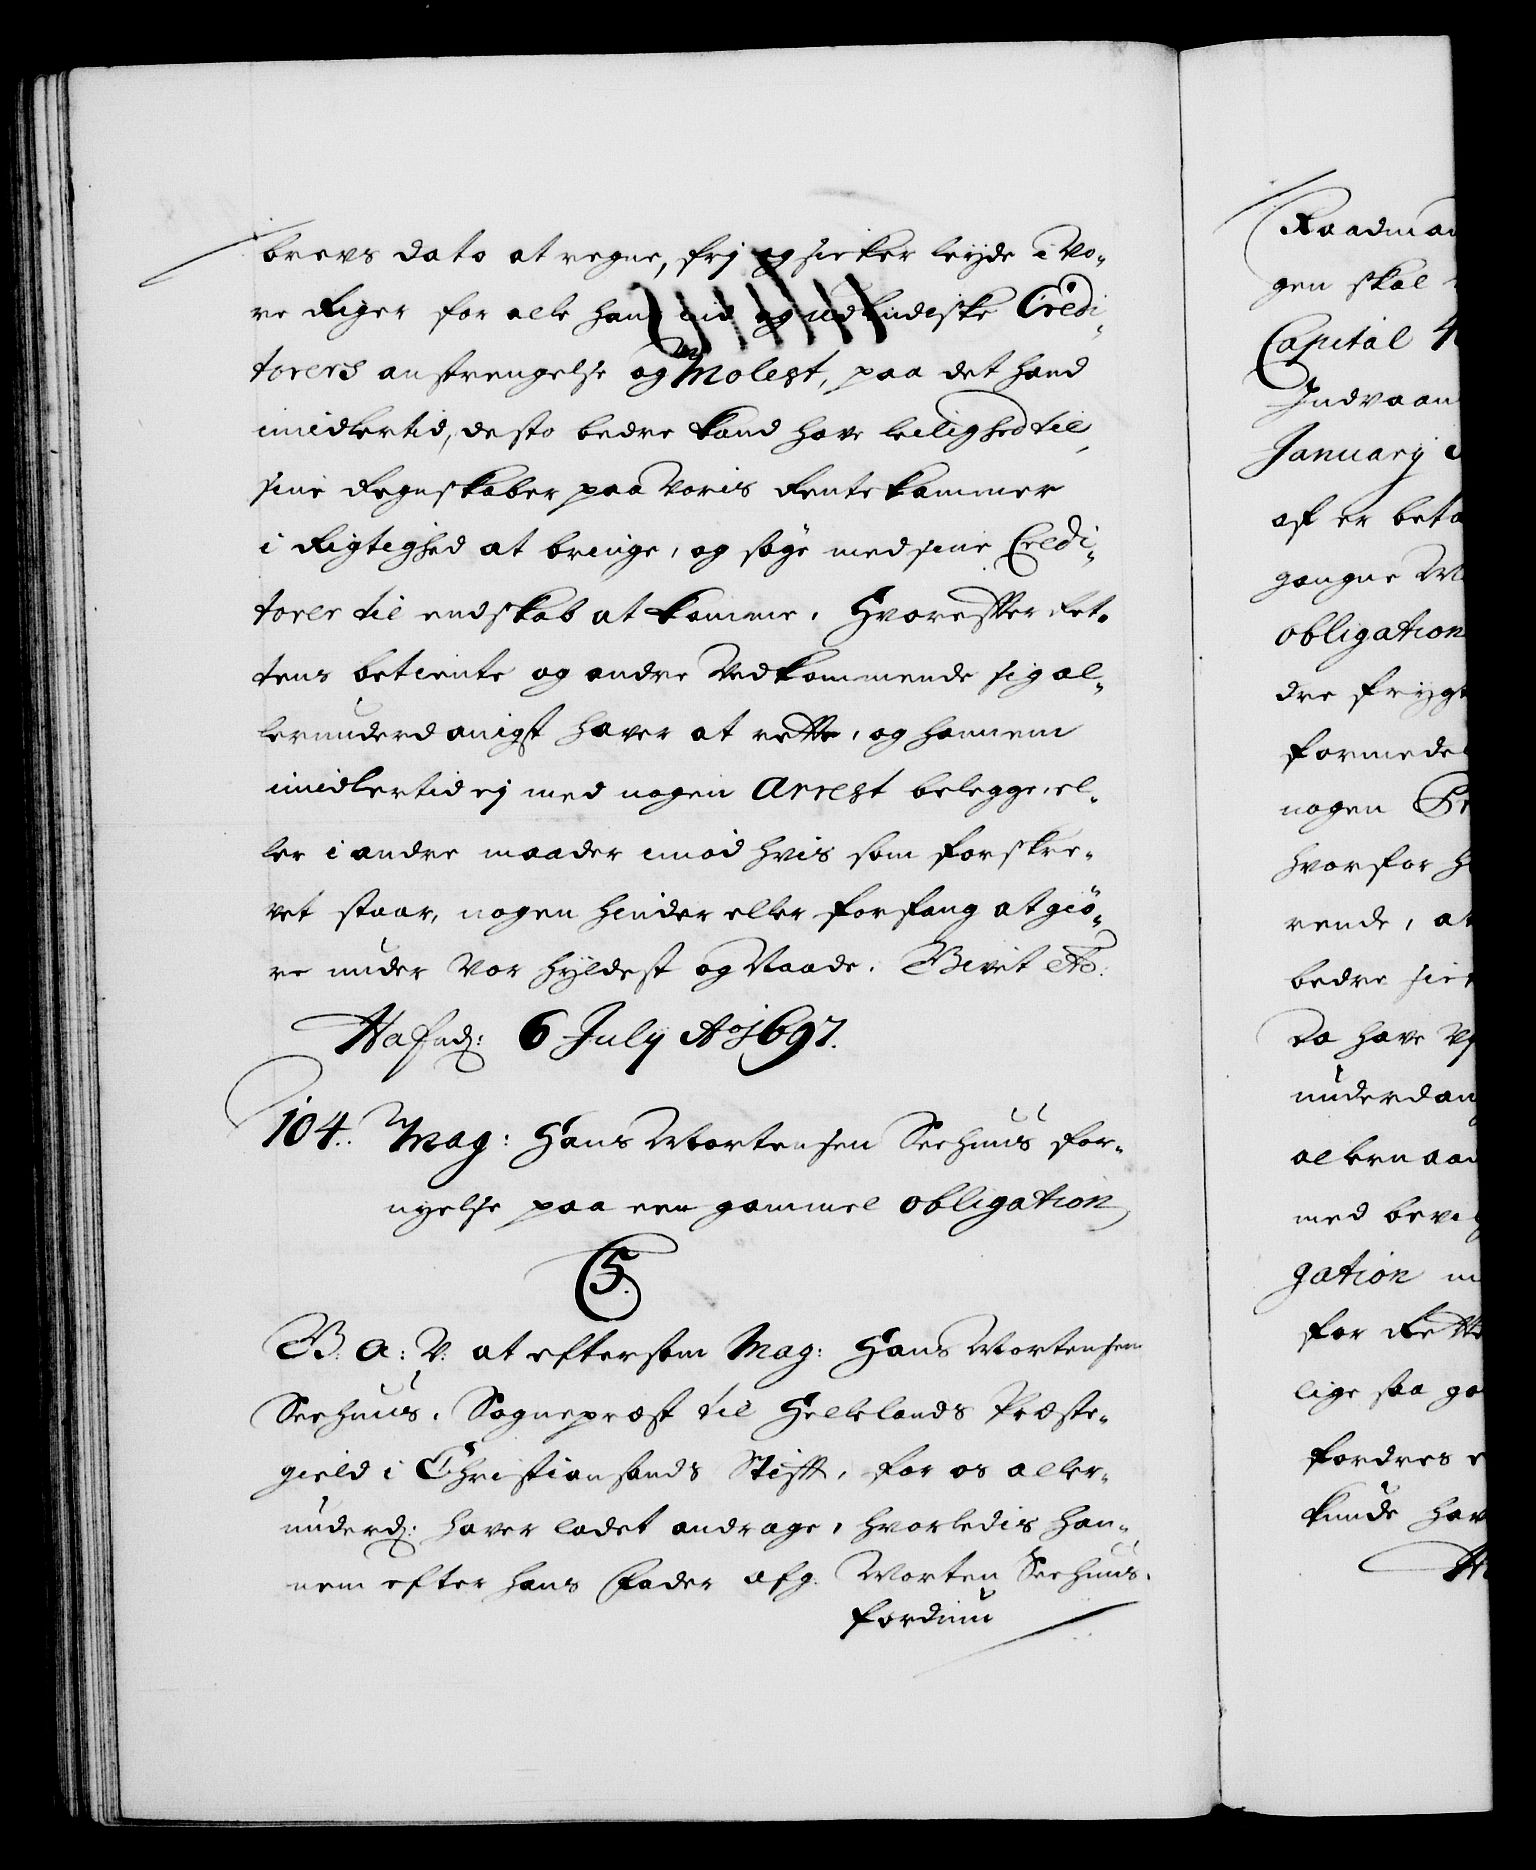 brevs dato at regne, frj og sicker leyde i Vo-
re Riger for alle hans ind og udlendiske Credi-
torers anstrengelse og Molest, paa det hand
imidlertid, desto bedre kand have leilighed til,
sine Regnskaber paa Voris Rentekammer
i Rigtighed at bringe, og søge med sine Credi-
torer til endskab at komme. Hvorefter Ret-
tens betiente og andre Vedkommende sig al-
lerunderdanigst haver at rette, og hannem
imidlertid ej med nogen Arrest belegge, el-
ler i andre maader imod hvis som forskre-
vet staar, nogen hinder eller forfang at giö-
re under Vor hyldest og Naade. Givet
Hafnd: 6 July Ao 1697.
104. Mag: Hans Mortensen Seehuus for-
nyelse paa een gammel obligation
C5.
G. A: V. at eftersom Mag: Hans Mortensen
Seehuus, Sognepræst til Hellelands Præste-
gield i Christiansands Stift, for os aller-
underd: haver ladet andrage, hvorledis han-
nem efter hans Fader afg. Morten Seehuus,
fordum
Raadman
gen skal
Capital 4
Indvaan
January
af er beta
gangne
obligation
dre frygt
formede
nogen
hvorfor
rende, at
bedre
Da have
underdan
allernaad
med bevi
gation
for Rette
lige saa go
fordres
kunde hav